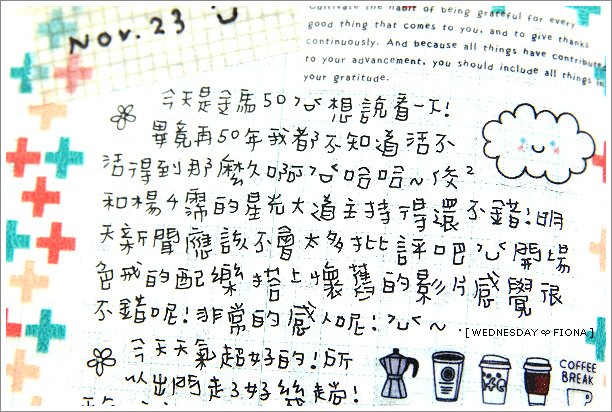 Nov. 23
Cultivate the habit of being grateful for every
good thing that comes to you, and to give thanks
continuously. And because all things have contributed
to your advancement, you should include all things in
your gratitude.
今天是金馬50 想說看一下!
畢竟再50年我都不知道活不
活得到那麼久啊 哈哈~ 俊²
和楊千霈的星光大道主持得還不錯!明
天新聞應該不會太多批評吧 開場
色戒的配樂搭上懷舊的影片感覺很
不錯呢!非常的感人呢! ~
今天天氣超好的!所
以出門走了好幾趟!
[WEDNESDAY FIONA]
COFFEE
BREAK